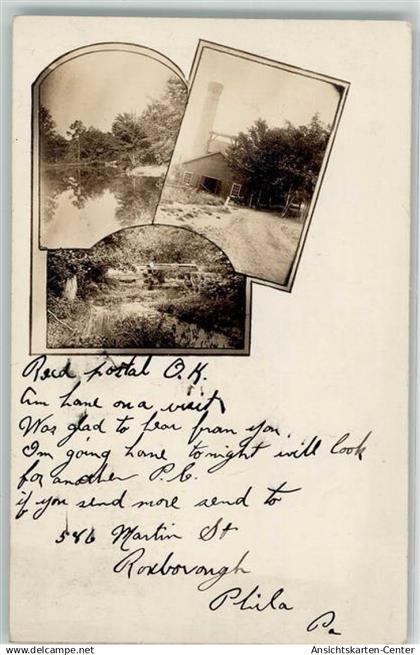 Recd postal O.K.
Am home on a visit
Was glad to hear from you.
I'm going home tonight will look
for another P.C.
if you send more send to
586 Martin St
Roxborough
Phila
Pa
Ansichtskarten-Center